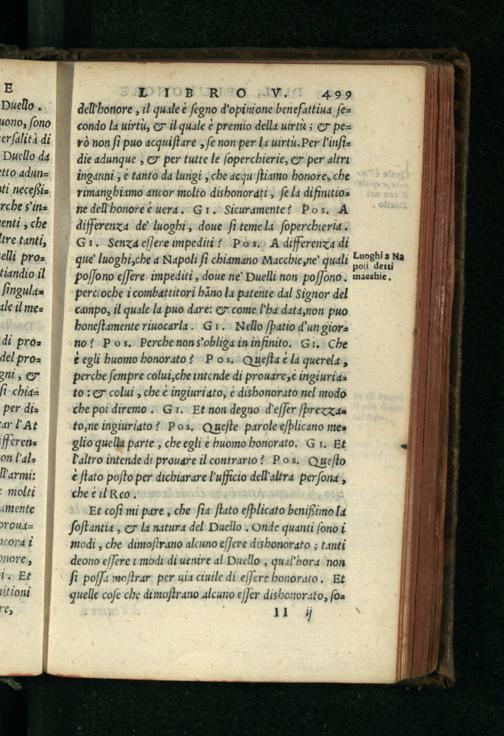 E
Duello.
uono, sono
ersalità di
Duello da
etto adun=
nti neceßi=
rche s'in=
enti, che
ltre tanti,
elli pro=
tiandio il
singula=
ale il me=
di pro=
del pro=
gni, &
si chia=
per di=
rar l'At
ifferen=
on l'al=
ll'armi:
e molti
amente
prova=
ncora i
onore,
i. Et
nitioni
re,
LIBRO V. 499
dell'honore, il quale è segno d'opinione benefattiua se=
condo la uirtù, & il quale è premio della uirtù; & pe=
rò non si puo acquistare, se non per la uirtù. Per l'insi=
die adunque, & per tutte le soperchierie, & per altri
inganni, è tanto da lungi, che acquistiamo honore, che
rimanghiamo ancor molto dishonorati, se la difinitio=
ne dell'honore è uera. GI. Sicuramente? POS. A
differenza de' luoghi, doue si teme la soperchieria.
GI. Senza essere impediti? POS. A differenza di
que' luoghi, che a Napoli si chiamano Macchie, ne' quali
possono essere impediti, doue ne' Duelli non possono.
percioche i combattitori hāno la patente dal Signor del
campo, il quale la puo dare: & come l'ha data, non puo
honestamente riuocarla. GI. Nello spatio d'un gior=
no? POS. Perche non s'obliga in infinito. GI. Che
è egli huomo honorato? POS. Questa è la querela,
perche sempre colui, che intende di prouare, è ingiuria=
to: & colui, che è ingiuriato, è dishonorato nel modo
che poi diremo. GI. Et non degno d'esser sprezza=
to, ne ingiuriato? POS. Queste parole esplicano me=
glio quella parte, che egli è huomo honorato. GI. Et
l'altro intende di prouare il contrario? POS. Questo
è stato posto per dichiarare l'ufficio dell'altra persona,
che è il Reo.
Et cosi mi pare, che sia stato esplicato benißimo la
sostantia, & la natura del Duello. Onde quanti sono i
modi, che dimostrano alcuno essere dishonorato; tanti
deono essere i modi di uenire al Duello, qual'hora non
si possa mostrar per uia ciuile di essere honorato. Et
quelle cose che dimostrano alcuno esser dishonorato, so=
II ij
Luoghi a Na
poli detti
macchie.